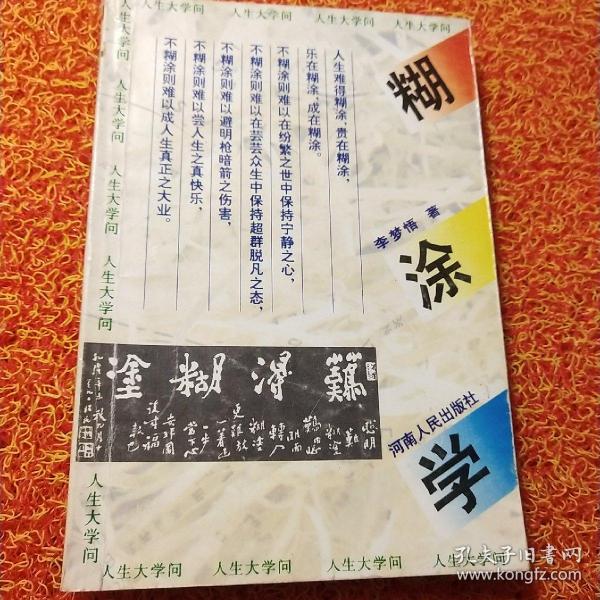 人生大学问 人生大学问 人生大学问 人生大学问
人生大学问
人生大学问
人生大学问
人生大学问
人生大学问
糊
涂
学
李梦悟 著
河南人民出版社
人生难得糊涂,贵在糊涂,
乐在糊涂,成在糊涂。
不糊涂则难以在纷繁之世中保持宁静之心,
不糊涂则难以在芸芸众生中保持超群脱凡之态,
不糊涂则难以避明枪暗箭之伤害,
不糊涂则难以尝人生之真快乐,
不糊涂则难以成人生真正之大业。
難得糊塗
聪明
難
糊塗
難由聪
明而
轉入
糊塗
更難放
一著退
一步
當下心
安非圖
後來福
報也
人生大学问 人生大学问 人生大学问 人生大学问
孔夫子旧书网
www.kongfz.com